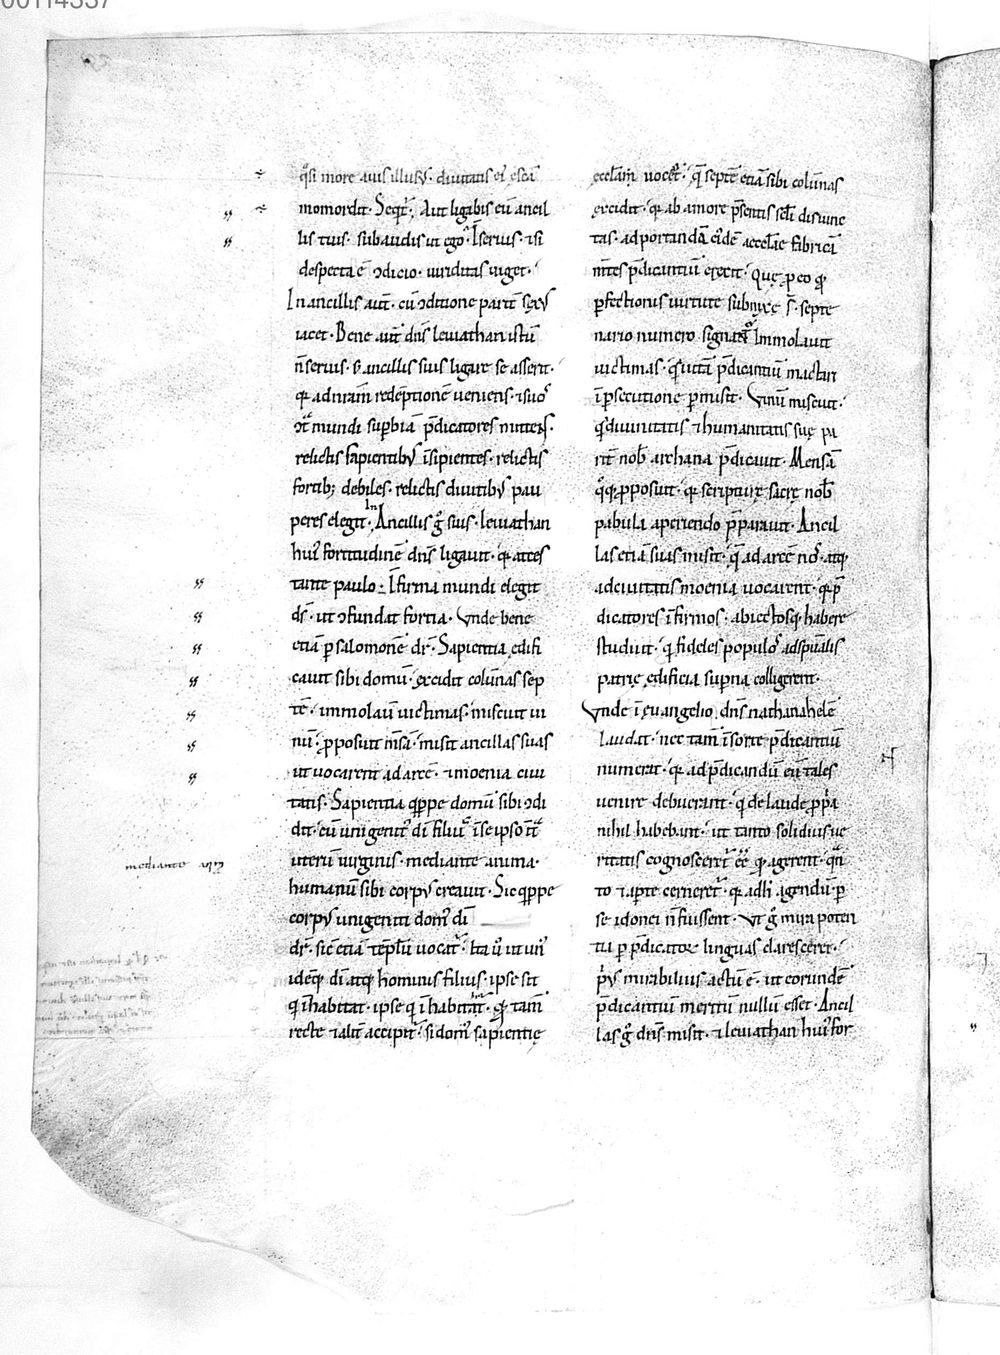 00114337
q̊si more auis illusus. diuitatis ei' escā
momordit. Seqt̄. Aut ligabis eū ancil
lis tuis. subaudis ut ego. In seruis. ⁊ si
despecta ē ↄdicio. uiriditas uiget.
In ancillis aut̄. cū ↄditione parit̄ sexꝰ
iacet. Bene aut̄ dn̄s leuiathan istū
n̄ seruis. s; ancillis suis ligare se asserit.
q̄ ad nr̄am redēptionē ueniens. ⁊ suo'
ↄt̄ mundi supbiā p̄dicatores mittens.
relictis sapientibꝰ īsipientes. relictis
fortib; debiles. relictis diuitibꝰ pau
peres elegit. In Ancillis g̊ suis. leuiathan
hui' fortitudinē dn̄s ligauit. q̄ attes
tante paulo. Infirma mundi elegit
ds̄. ut ↄfundat fortia. Vnde bene
etiā p salomonē dr̄. Sapientia edifi
cauit sibi domū. excidit colūnas sep
tē. immolauit uictimas. miscuit ui
nū. pposuit m̄sā. misit ancillas suas
ut uocarent ad arcē. ⁊ moenia ciui
tatis. Sapientia q̄ppe domū sibi ↄdi
dit. cū unigenit' dī filiꝰ īse ipso int̄
uterū uirginis. mediante anima.
humanū sibi corpꝰ creauit. Sic q̄ppe
corpꝰ unigeniti dom' dī
dr̄. sic etiā tēplū uocat̄. Ita ū ut un'
idēq; dī atq; hominis filius. ipse sit
q īhabitat. ipse q īhabitat̄. Q̄ tam̄
recte ⁊ alit̄ accipit̄. si dom' sapientię
mediante
ecclām uocet̄. q̄ septē etiā sibi colūnas
excidit. q̄ ab amore p̄sentis scl̄i disiunc
tas. ad portandā ei'dē ecclāe fabricā
m̄tes p̄dicantiū erexit. Quę p eo q̄
pfectionis uirtute subnixę st̄. septe
nario numero signant̄. Immolauit
uictimas. q̄ uitā p̄dicantiū mactari
ī psecutione pmisit. Vinū miscuit.
q̄ diuinitatis ⁊ humanitatis suę pa
rit̄ nob̄ archana p̄dicauit. Mensā
q̊q; pposuit. q̄ scripturę sacrę nob̄
pabula aperiendo p̄parauit. Ancil
las etiā suas misit. q̄ ad arcē nos. atq;
ad ciuitatis moenia uocarent. q̄ p̄
dicatores īfirmos. abiectosq; habere
studuit. q̄ fideles populos ad spiritalis
patrię edificia supna colligerent.
Vnde ī euangelio. dn̄s nathanahelē
laudat. nec tam̄ ī sorte p̄dicantiū
numerat. q̄ ad p̄dicandū eū tales
uenire debuerant. q̄ de laude ppria
nihil habebant. ut tanto solidius ue
ritatis cognosceret̄ ēē q̄ agerent. q̄n
to ⁊ apte cerneret̄. q̄ ad h̄ agendū p
se idonei n̄ fuissent. Vt g̊ mira poten
tia p p̄dicatorū linguas claresceret.
p̄us mirabilius actū ē. ut eorundē
p̄dicantiū meritū nullū esset. Ancil
las g̊ dn̄s misit. ⁊ leuiathan hui' for